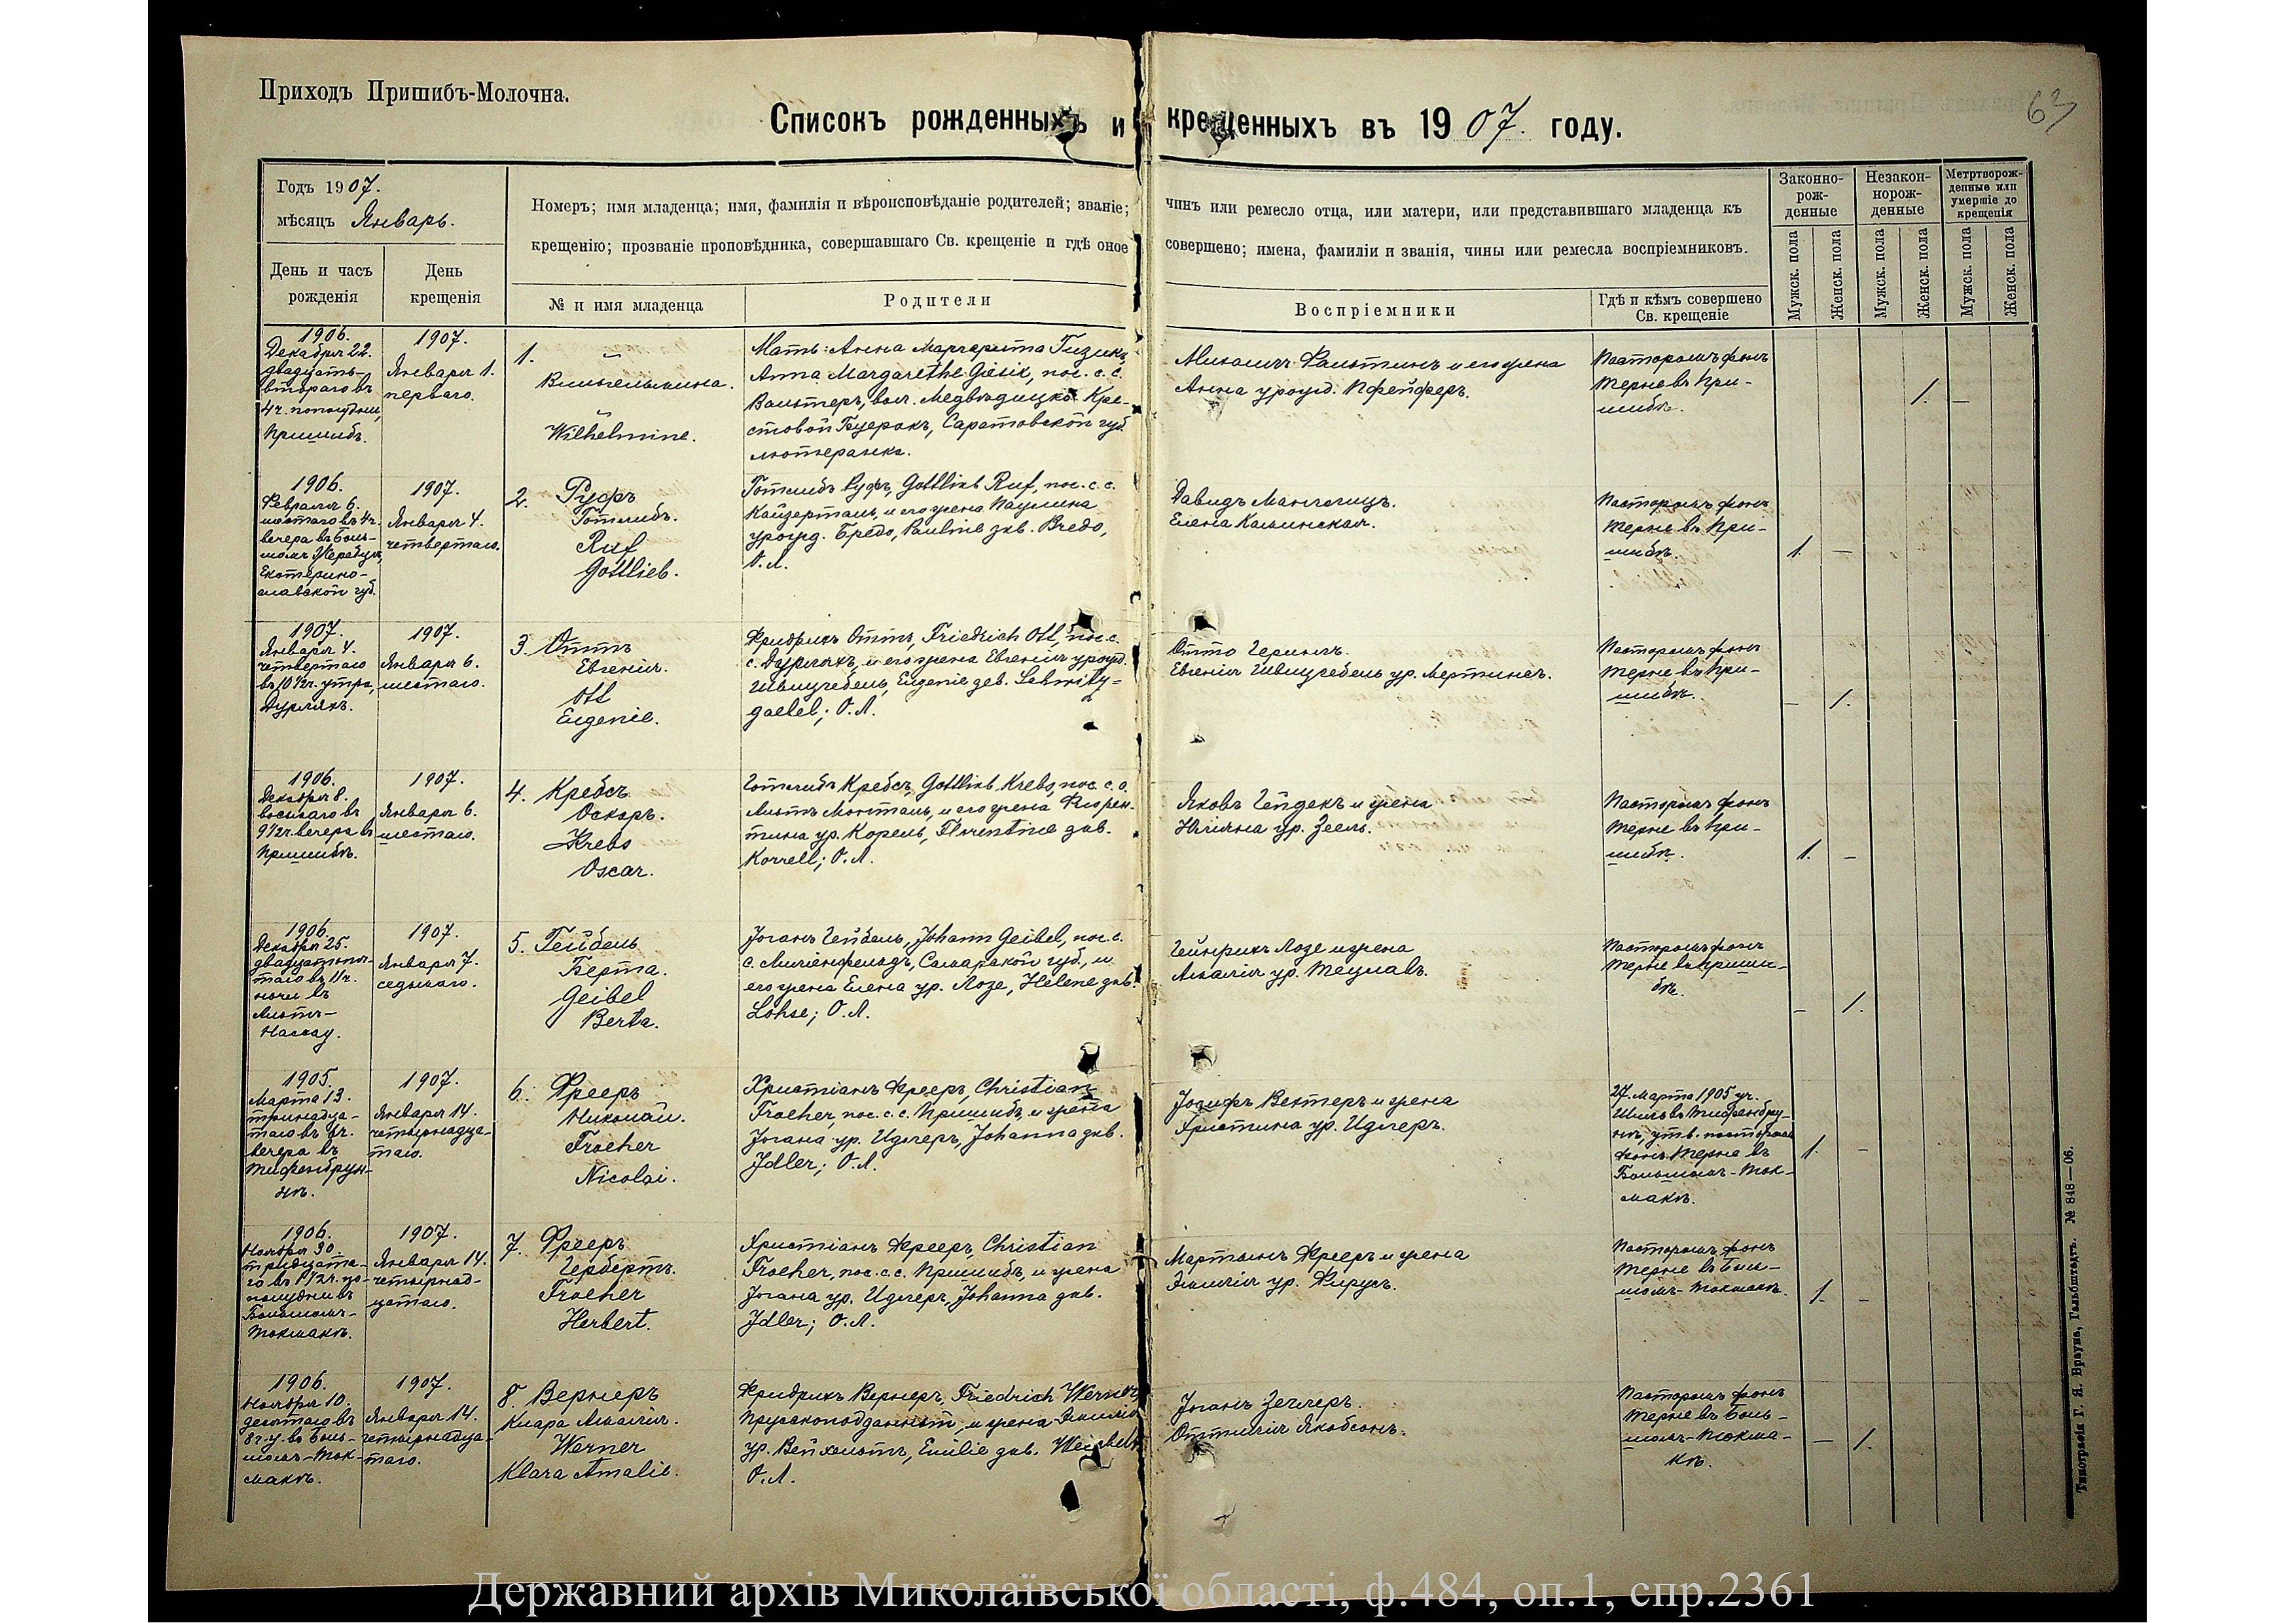 Приходъ Пришибъ-Молочна.
63
Списокъ рожденныхъ и крещенныхъ въ 1907. году.
Годъ 1907.
мѣсяцъ Январь.
День и часъ
рожденія
День
крещенія
Номеръ; имя младенца; имя, фамилія и вѣроисповѣданіе родителей; званіе; чинъ или ремесло отца, или матери, или представившаго младенца къ
крещенію; прозваніе проповѣдника, совершавшаго Св. крещеніе и гдѣ оное совершено; имена, фамиліи и званія, чины или ремесла воспріемниковъ.
№ и имя младенца
Родители
Воспріемники
Гдѣ и кѣмъ совершено
Св. крещеніе
Законно-
рож-
денные
Незакон-
норож-
денные
Метртворож-
денные или
умершіе до
крещенія
Мужск. пола
Женск. пола
Мужск. пола
Женск. пола
Мужск. пола
Женск. пола
1906.
Декабря 22.
двадцать-
втораго въ
4 ч. пополудни,
Пришибъ.
1907.
Января 1.
перваго.
1. –
Вильгельмина.
–
Wilhelmine.
Мать: Анна Маргарита Гизикъ,
Anna Margarethe Gisik, пос. с. с.
Вальтеръ, вол. Медвѣдицко-Кре-
стовой Буеракъ, Саратовской губ.
лютеранка.
Михаилъ Фальтинъ и его жена
Анна урожд. Пфейферъ.
Пасторомъ фонъ
Терне въ При-
шибѣ.
1. –
1906.
Февраля 6.
шестаго въ 4 ч.
вечера въ Боль-
шомъ Жеребцѣ,
Екатерино-
славской губ.
1907.
Января 4.
четвертаго.
2. Руфъ
Готлибъ.
Ruf
Gottlieb.
Готлибъ Руфъ, Gottlieb Ruf, пос. с. с.
Кайзерталь, и его жена Паулина
урожд. Бредо, Pauline geb. Bredo,
О. Л.
Давидъ
Елена Калинская.
Пасторомъ фонъ
Терне въ При-
шибѣ.
1. –
1907.
Января 4.
четвертаго
въ 10 1/2 ч. утра,
Дурлахъ.
1907.
Января 6.
шестаго.
3. Оттъ
Евгенія.
Ott
Eugenie.
Фридрихъ Оттъ, Friedrich Ott, пос. с.
с. Дурлахъ, и его жена Евгенія урожд.
Швицгебель, Eugenie geb. Schwitz-
gaebel; О. Л.
Отто Герингъ.
Евгенія Швицгебель ур. Мартинсъ.
Пасторомъ фонъ
Терне въ При-
шибѣ.
– 1.
1906.
Декабря 8.
восьмаго въ
9 1/2 ч. вечера въ
Пришибѣ.
1907.
Января 6.
шестаго.
4. Кребсъ
Оскаръ.
Krebs
Oscar.
Готлибъ Кребсъ, Gottlieb Krebs, пос. с. о.
Альтъ-Монталь, и его жена Флорен-
тина ур. Корель, Florentine geb.
Korrell; О. Л.
Яковъ Гейдекъ и жена
Юліяна ур. Зеель.
Пасторомъ фонъ
Терне въ При-
шибѣ.
1. –
1906.
Декабря 25.
двадцатьпя-
таго въ 11 ч.
ночи въ
Альтъ-
Нассау.
1907.
Января 7.
седьмаго.
5. Гейбель
Берта.
Geibel
Berta.
Іоганъ Гейбель, Johann Geibel, пос. с.
с. Лиліенфельдъ, Самарской губ., и
его жена Елена ур. Лозе, Helene geb.
Lohse; О. Л.
Гейнрихъ Лозе и жена
Амалія ур. Теуцлавъ.
Пасторомъ фонъ
Терне въ Приши-
бѣ.
– 1.
1905.
Марта 13.
тринадца-
таго въ 8 ч.
вечера въ
Тифенбрун-
нѣ.
1907.
Января 14.
четырнадца-
таго.
6. Фрееръ
Николай.
Froeher
Nicolai.
Христіанъ Фрееръ, Christian
Froeher, пос. с. с. Пришибъ, и жена
Іогана ур. Идлеръ, Johanna geb.
Idler; О. Л.
Іосифъ Вектеръ и жена
Христина ур. Идлеръ.
27. Марта 1905 уч.
Шиль въ Тифенбру-
нѣ, утв. пасторомъ
фонъ Терне въ
Большомъ-Ток-
макѣ.
1. –
1906.
Ноября 30.
тридцата-
го въ 1 1/2 ч. по-
полудни въ
Большомъ-
Токмакѣ.
1907.
Января 14.
четырнад-
цатаго.
7. Фрееръ
Гербертъ.
Froeher
Herbert.
Христіанъ Фрееръ, Christian
Froeher, пос. с. с. Пришибъ, и жена
Іогана ур. Идлеръ, Johanna geb.
Idler; О. Л.
Мартынъ Фрееръ и жена
Эмилія ур. Фирусъ.
Пасторомъ фонъ
Терне въ Боль-
шомъ-Токмакѣ.
1. –
1906.
Ноября 10.
десятаго въ
8 ч. у. въ Боль-
шомъ-Ток-
макѣ.
1907.
Января 14.
четырнадца-
таго.
8. Вернеръ
Клара Амалія.
Werner
Klara Amalie.
Фридрихъ Вернеръ, Friedrich Werner,
Прусскоподданный, и жена Эмилія
ур. Вейхольтъ, Emilie geb. Weicholt
О. Л.
Іоганъ Зеглеръ.
Оттилія Якобсонъ.
Пасторомъ фонъ
Терне въ Боль-
шомъ-Токма-
кѣ.
– 1.
Типографія Г. Я. Брауна, Гальбштадтъ. № 848—06.
Державний архів Миколаївської області, ф.484, оп.1, спр.2361